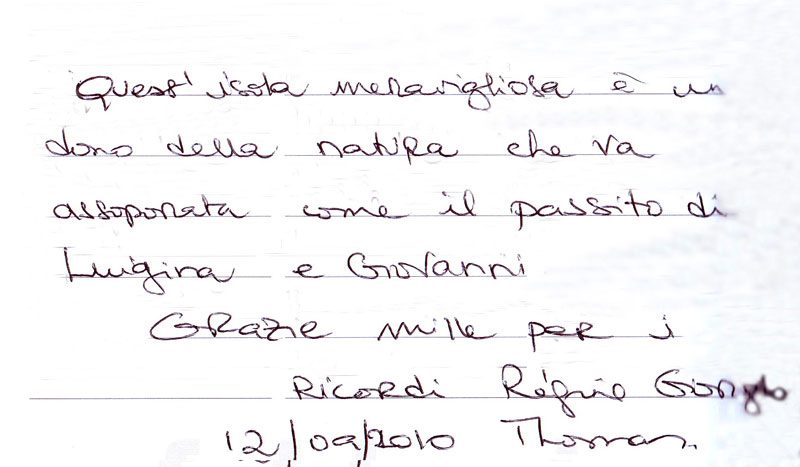 Quest' isola meravigliosa è un
dono della natura che va
assaporata come il passito di
Luigina e Giovanni
Grazie mille per i
Ricordi
12/09/2010 Thomas.